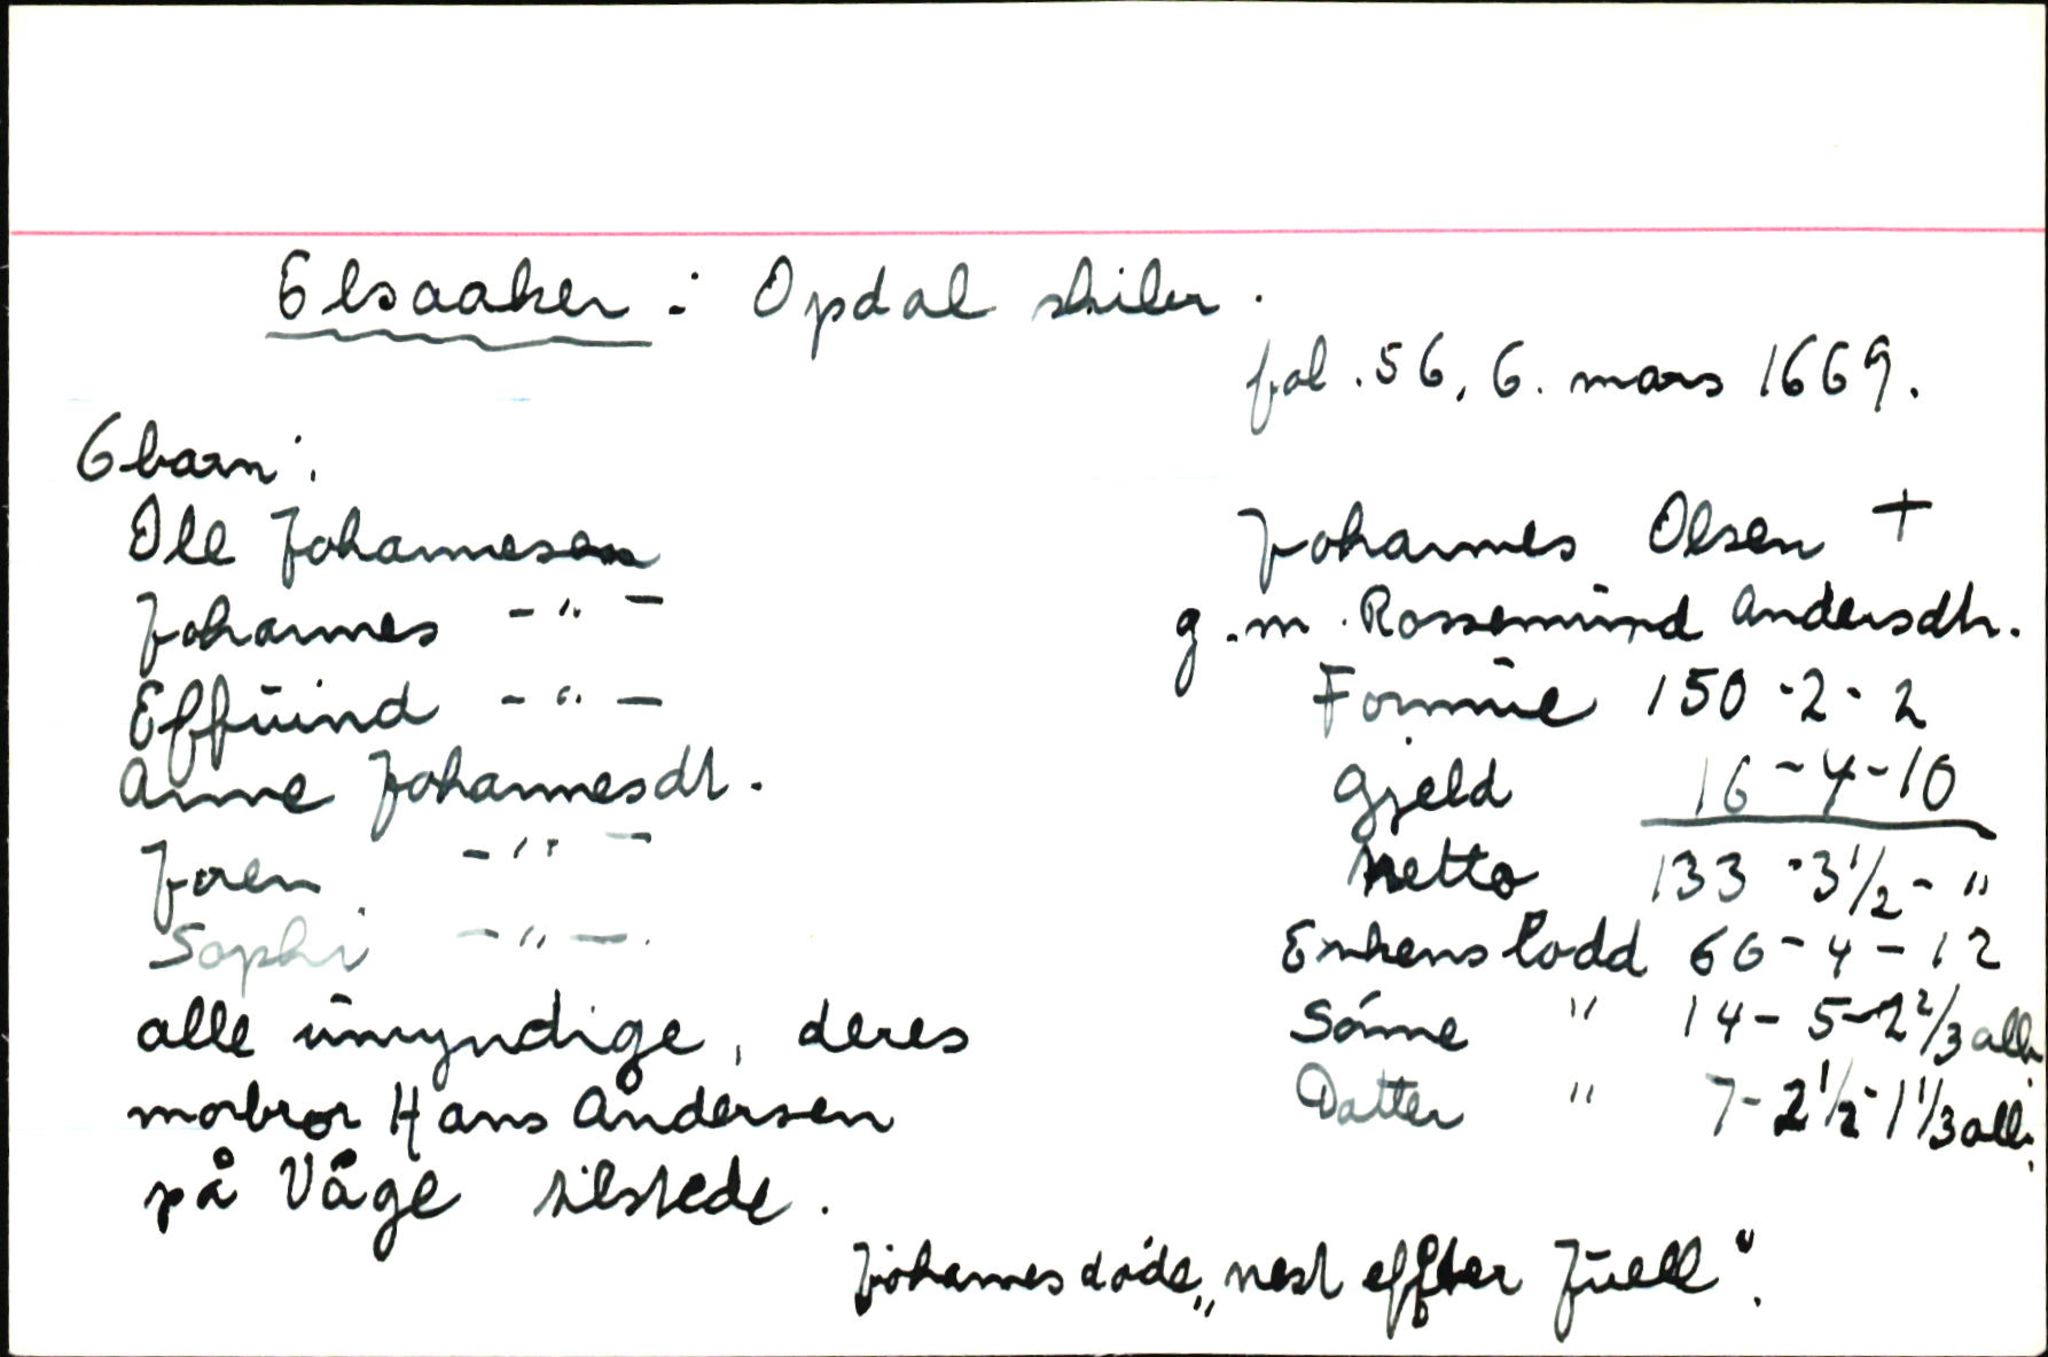 Elsaaker : Opdal skiler.
fol. 56, 6. mars 1669.
6 barn :
Ole Johannesen
Johannes - " -
Effuind - " -
Anne Johannesdt.
Joren - " -
Sophi - " -.
alle umyndige, deres
morbror Hans Andersen
på Våge tilstede.
Johannes Olsen +
g.m. Rossemund Andersdtr.
Formue 150 - 2 - 2
Gjeld 16 - 4 - 10
Netto 133 - 3 1/2 - "
Enkens lodd 66 - 4 - 12
Sønne " 14 - 5 - 2 2/3 alb.
Datter " 7 - 2 1/2 - 1 1/3 alb.
Johannes døde „nest effter Juell".